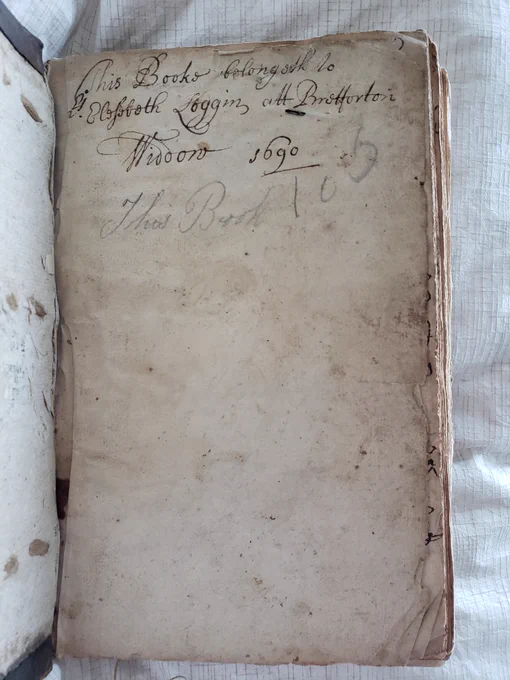 This Booke belongeth to
Elesebeth Loggin att Bretforton
Widdow 1690
This Book